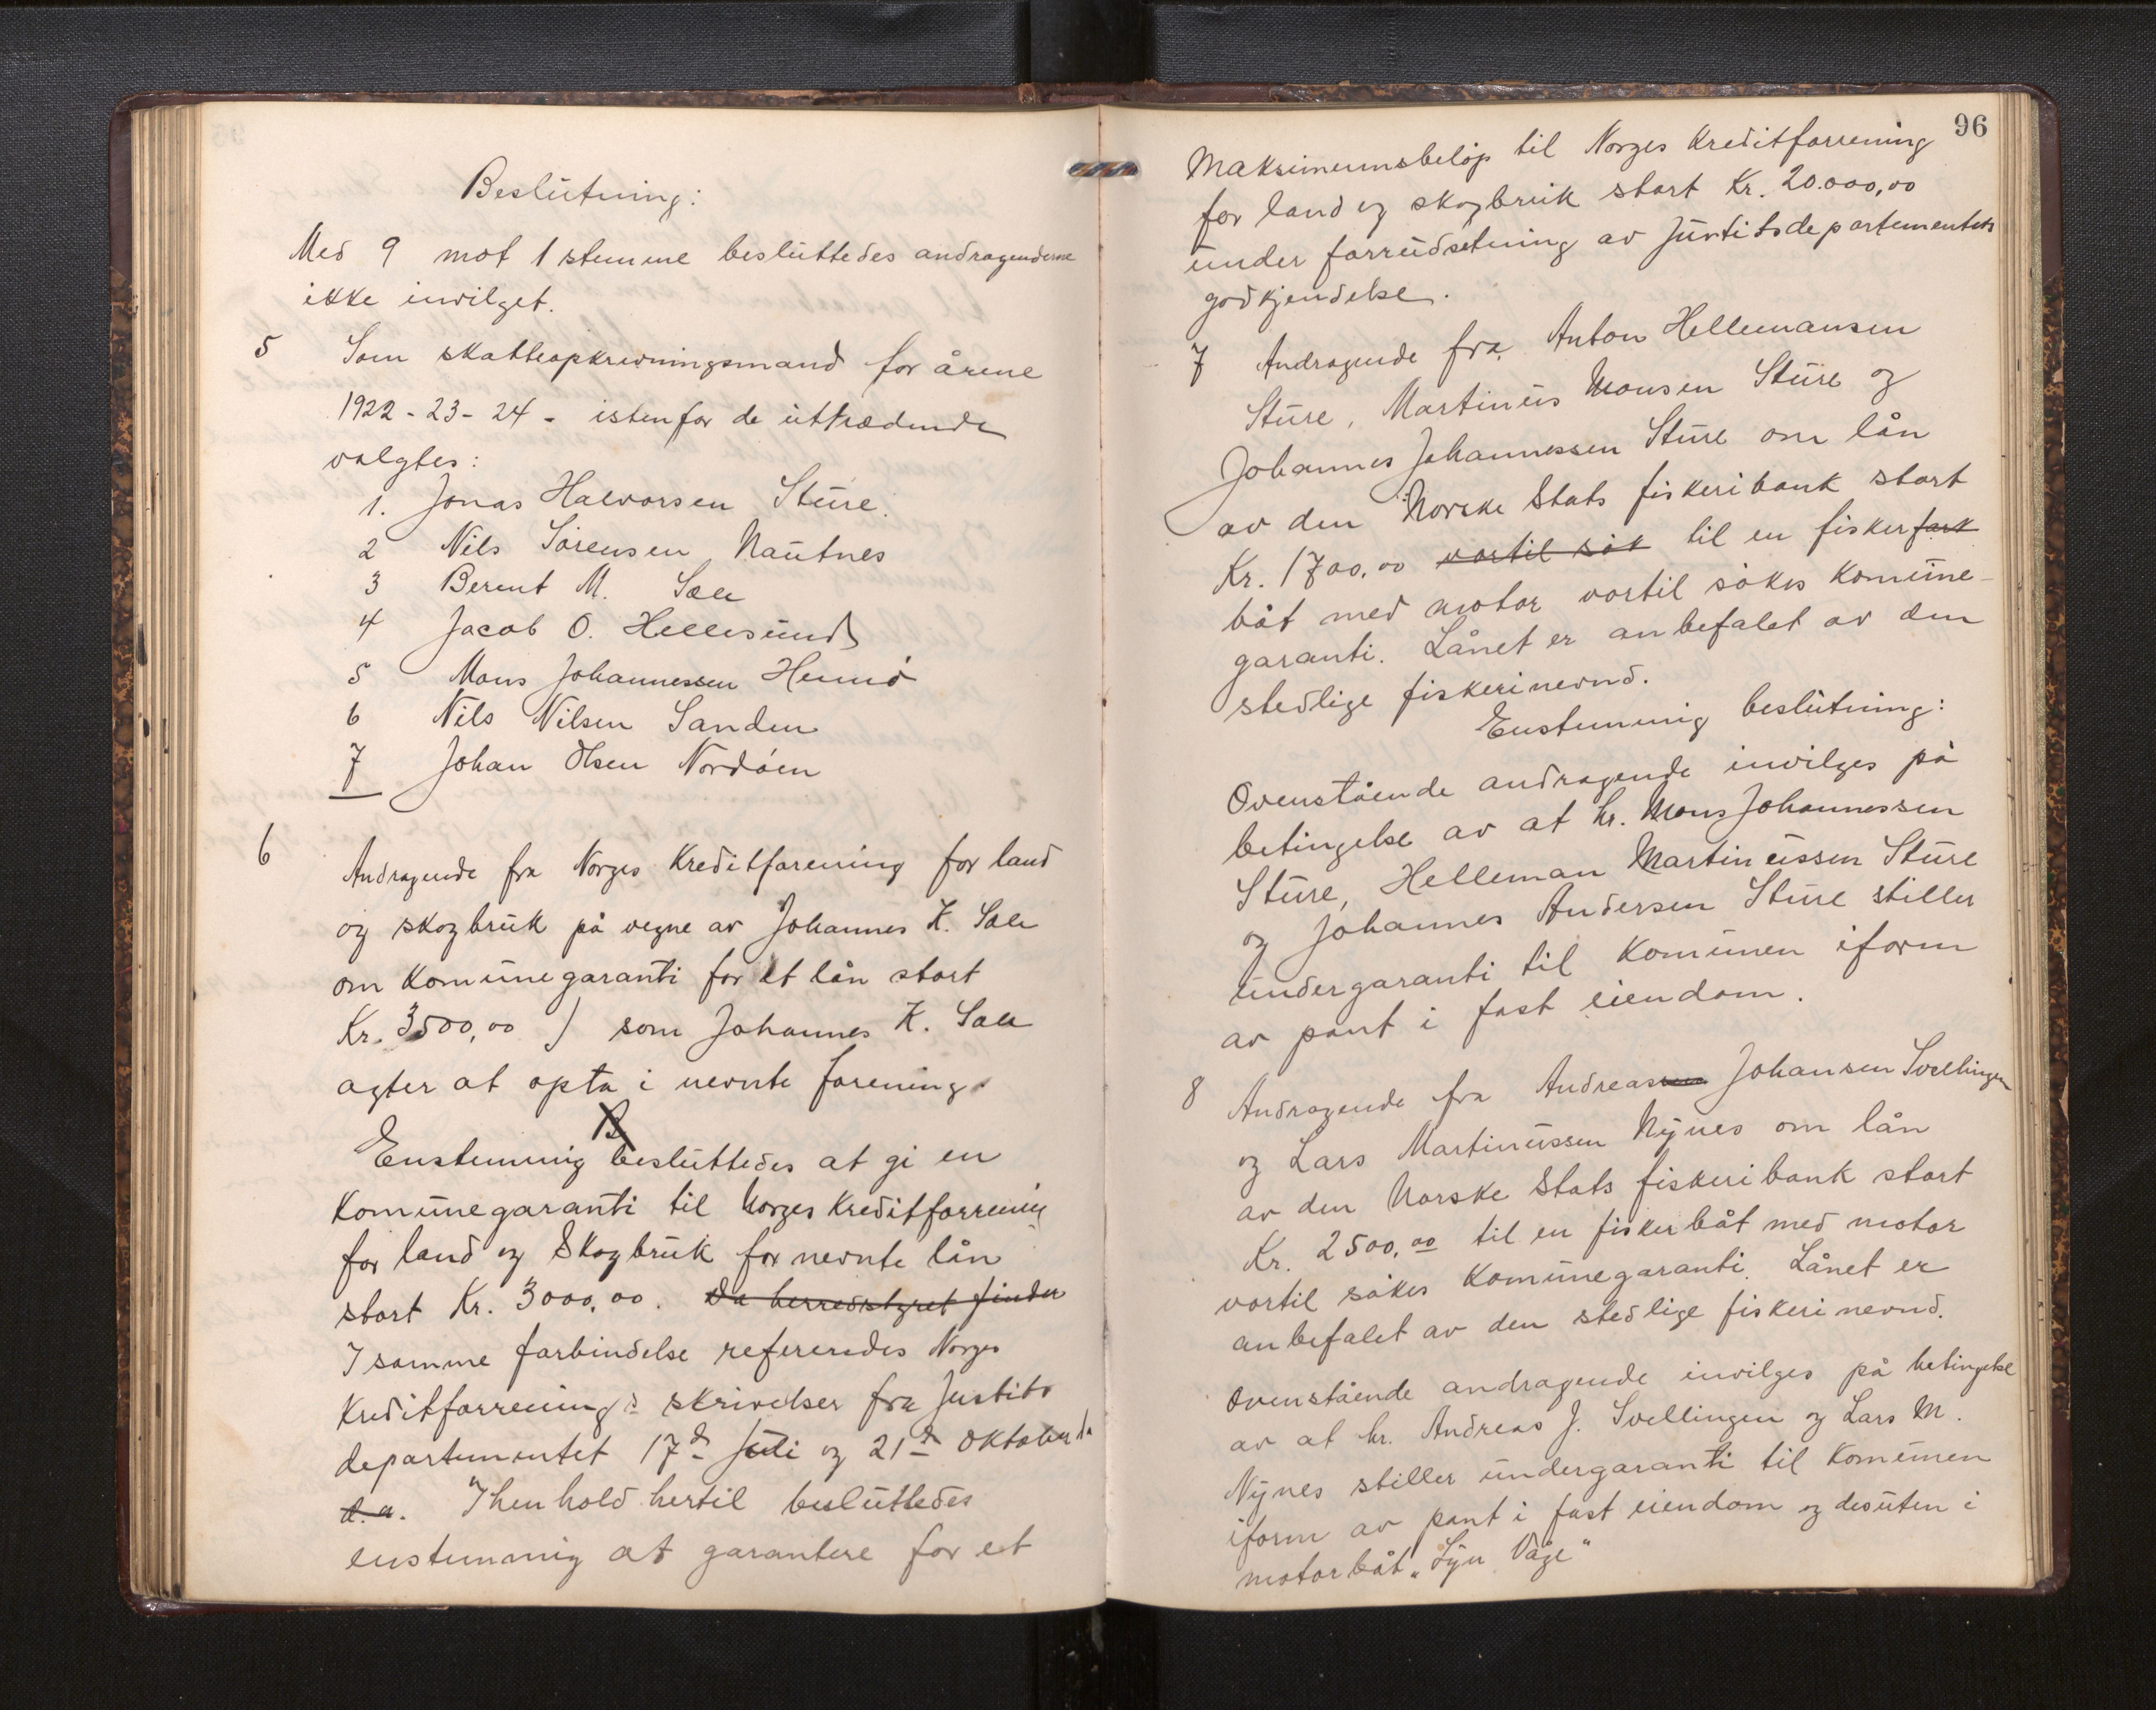 Beslutning:
Med 9 mot 1 stemme besluttedes andragenderne
ikke invilget.
5 Som skatteopkrevningsmand for årene
1922-23-24 - istenfor de uttrædende
valgtes:
1. Jonas Halvorsen Sture.
2 Nils Sörensen Nautnes
3 Berent M. Sæle
4 Jacob O. Hellesund
5 Mons Johannessen Hernö
6 Nils Nilsen Sanden
7 Johan Olsen Nordöen
6 Andragende fra Norges Kreditforening for land
og skogbruk på vegne av Johannes K. Sæle
om Komunegaranti for et lån stort
Kr. 3500,00 ) som Johannes K. Sæle
agter at opta i nevnte forening.
Enstemmig besluttedes at gi en
Komunegaranti til Norges Kreditforrening
for land og Skogbruk for nevnte lån
stort Kr. 3000,00. Da herredstyret finder
I samme forbindelse referendes Norges
Kreditforrenings skrivelser fra Justits
departementet 17d Juli og 21d Oktober
d.a. I henhold hertil besluttedes
enstemmig at garantere for et
96
Maksimumsbeløp til Norges Kreditforrening
for land og skogbruk stort Kr. 20.000,00
under forrudsetning av Justitsdepartementets
godkjendelse.
7 Andragende fra Anton Hellemansen
Sture, Martinus Monsen Sture og
Johannes Johannessen Sture om lån
av den Norske Stats fiskeribank stort
Kr. 1700,00 vortil søk til en fiskerfark
båt med motor vortil søkes Komune-
garanti. Lånet er anbefalet av den
stedlige fiskerinevnd.
Enstemmig beslutning:
Ovenstående andragende invilges på
betingelse av at hr. Mons Johannessen
Sture, Helleman Martinussen Sture
og Johannes Andersen Sture stiller
undergaranti til Komunen iform
av pant i fast eiendom.
8 Andragende fra Andreas Johansen Svellingen
og Lars Martinussen Nynes om lån
av den Norske Stats fiskeribank stort
Kr. 2500,00 til en fiskerbåt med motor
vortil søkes Komunegaranti. Lånet er
anbefalet av den stedlige fiskerinevnd.
Ovenstående andragende invilges på betingelse
av at hr. Andreas J. Svellingen og Lars M.
Nynes stiller undergaranti til Komunen
iform av pant i fast eiendom og desuten i
motorbåt "Lyn Våge"